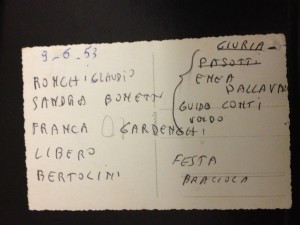 9-6-53
RONCHI CLAUDIO
SANDRA BONETTI
FRANCA GARDENGHI
LIBERO
BERTOLINI
GIURIA
PASOTTI
ENEA
DALLAVAL
GUIDO CONTI
VOLDO
FESTA
BRACIOLA